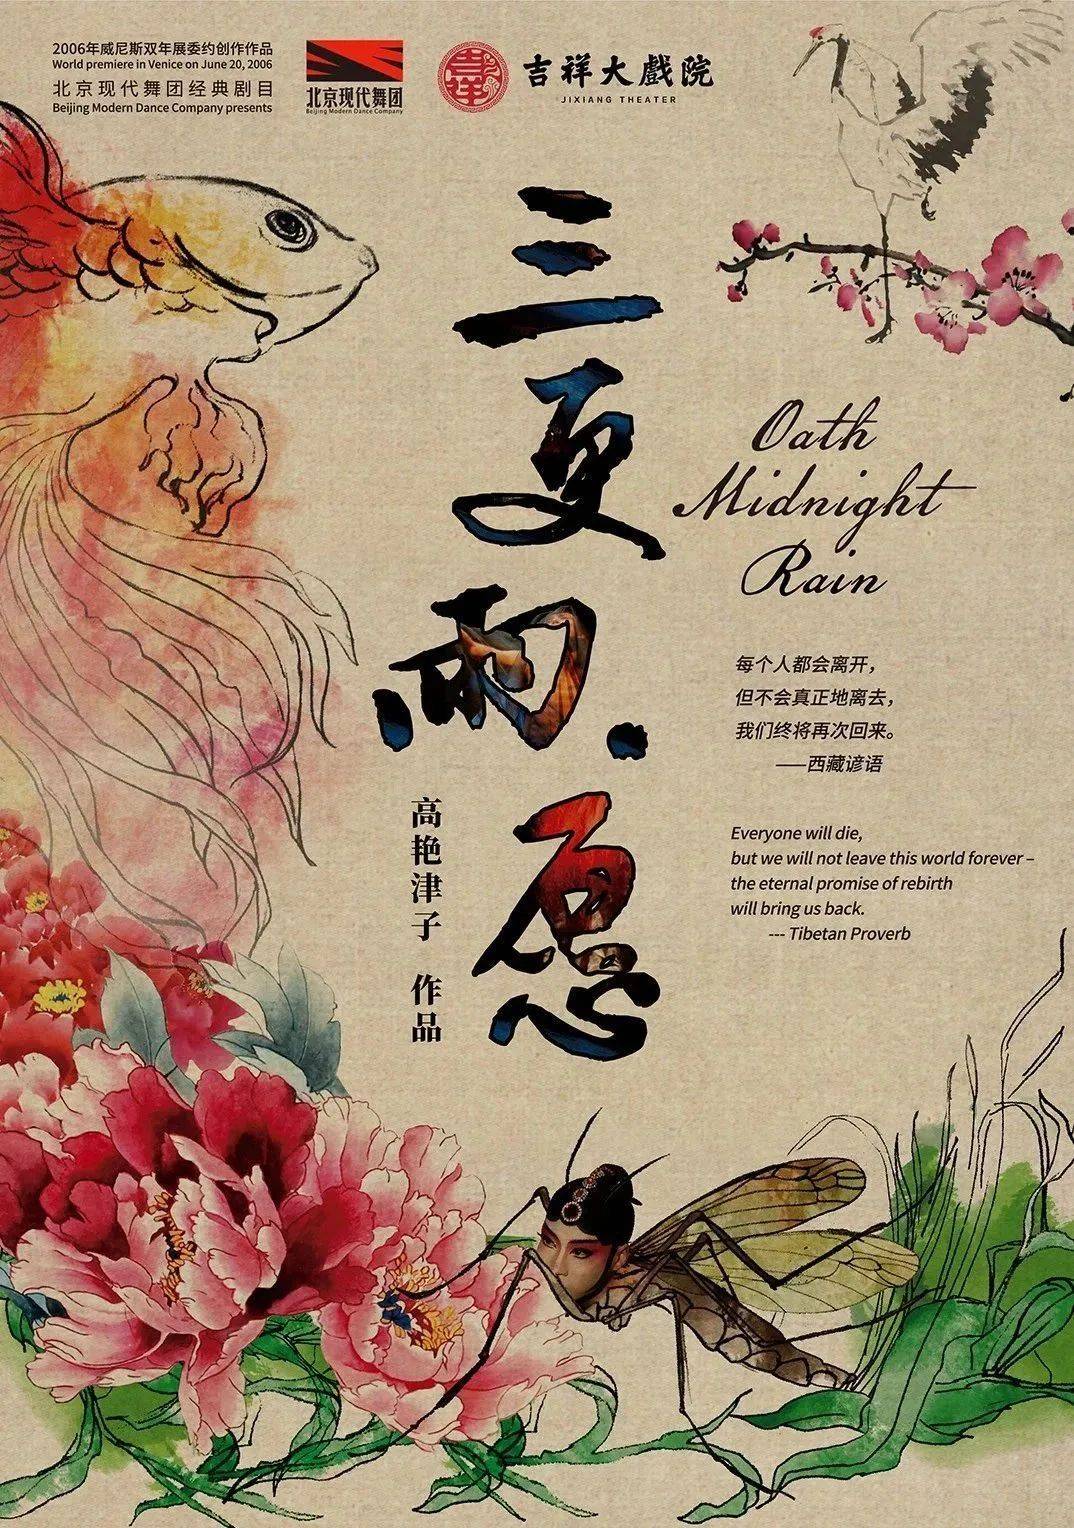 2006年威尼斯双年展委约创作作品
World premiere in Venice on June 20, 2006
北京现代舞团经典剧目
Beijing Modern Dance Company presents
北京现代舞团
Beijing Modern Dance Company
吉祥
吉祥大戲院
JIXIANG THEATER
三更雨·愿
Oath
Midnight
Rain
每个人都会离开，
但不会真正地离去，
我们终将再次回来。
——西藏谚语
Everyone will die,
but we will not leave this world forever –
the eternal promise of rebirth
will bring us back.
--- Tibetan Proverb
高艳津子 作品